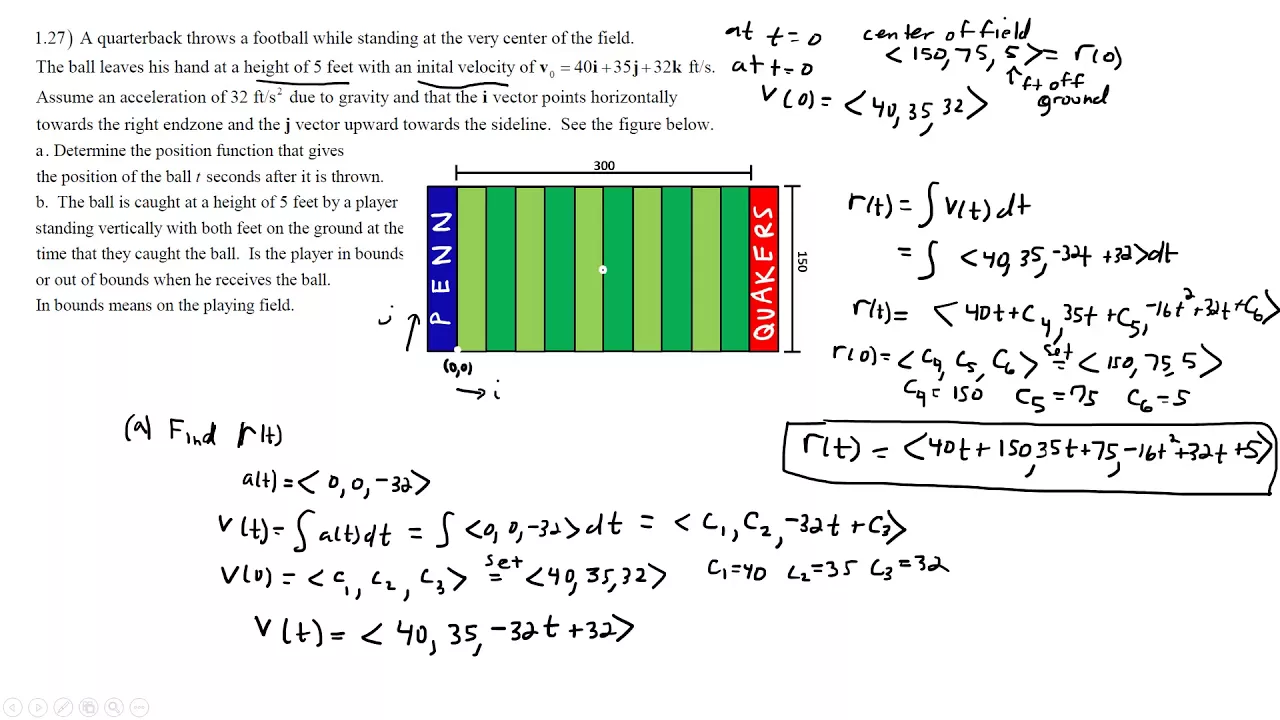 1.27) A quarterback throws a football while standing at the very center of the field.
The ball leaves his hand at a height of 5 feet with an inital velocity of v₀ = 40i +35j +32k ft/s.
Assume an acceleration of 32 ft/s² due to gravity and that the i vector points horizontally
towards the right endzone and the j vector upward towards the sideline.  See the figure below.
a. Determine the position function that gives
the position of the ball t seconds after it is thrown.
b.  The ball is caught at a height of 5 feet by a player
standing vertically with both feet on the ground at the
time that they caught the ball.  Is the player in bounds
or out of bounds when he receives the ball.
In bounds means on the playing field.
300
PENN
QUAKERS
150
j
(0,0)
→ i
at t=0 center of field
<150,75,5> = r(0)
at t=0
ft off
ground
V(0) = <40,35,32>
(a) Find r(t)
a(t) = <0,0,-32>
V(t) = ∫ a(t)dt = ∫ <0,0,-32> dt = <C₁, C₂, -32t + C₃>
V(0) = <C₁, C₂, C₃> set = <40,35,32> C₁=40 C₂=35 C₃=32
V(t) = <40, 35, -32t +32>
r(t) = ∫ V(t) dt
= ∫ <40,35,-32t +32> dt
r(t) = <40t+C₄, 35t+C₅, -16t²+32t+C₆>
r(0) = <C₄, C₅, C₆> set = <150,75,5>
C₄=150 C₅=75 C₆=5
r(t) = <40t+150, 35t+75, -16t²+32t+5>